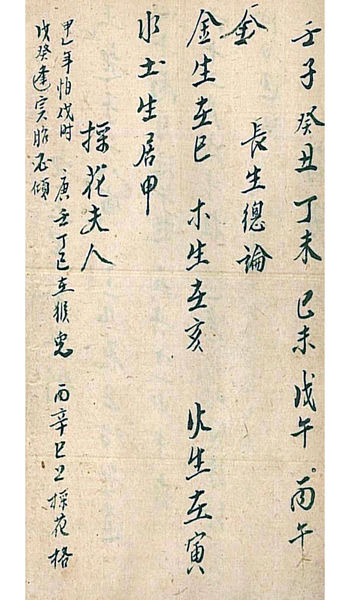 壬子癸丑丁未巳未戊午丙午
金 長生總論
金生在巳 木生在亥 火生在寅
水土生居申
採花夫人
甲乙年怕戌时 庚壬丁巳在猴鬼 丙辛巳上採花格
戊癸逢寅